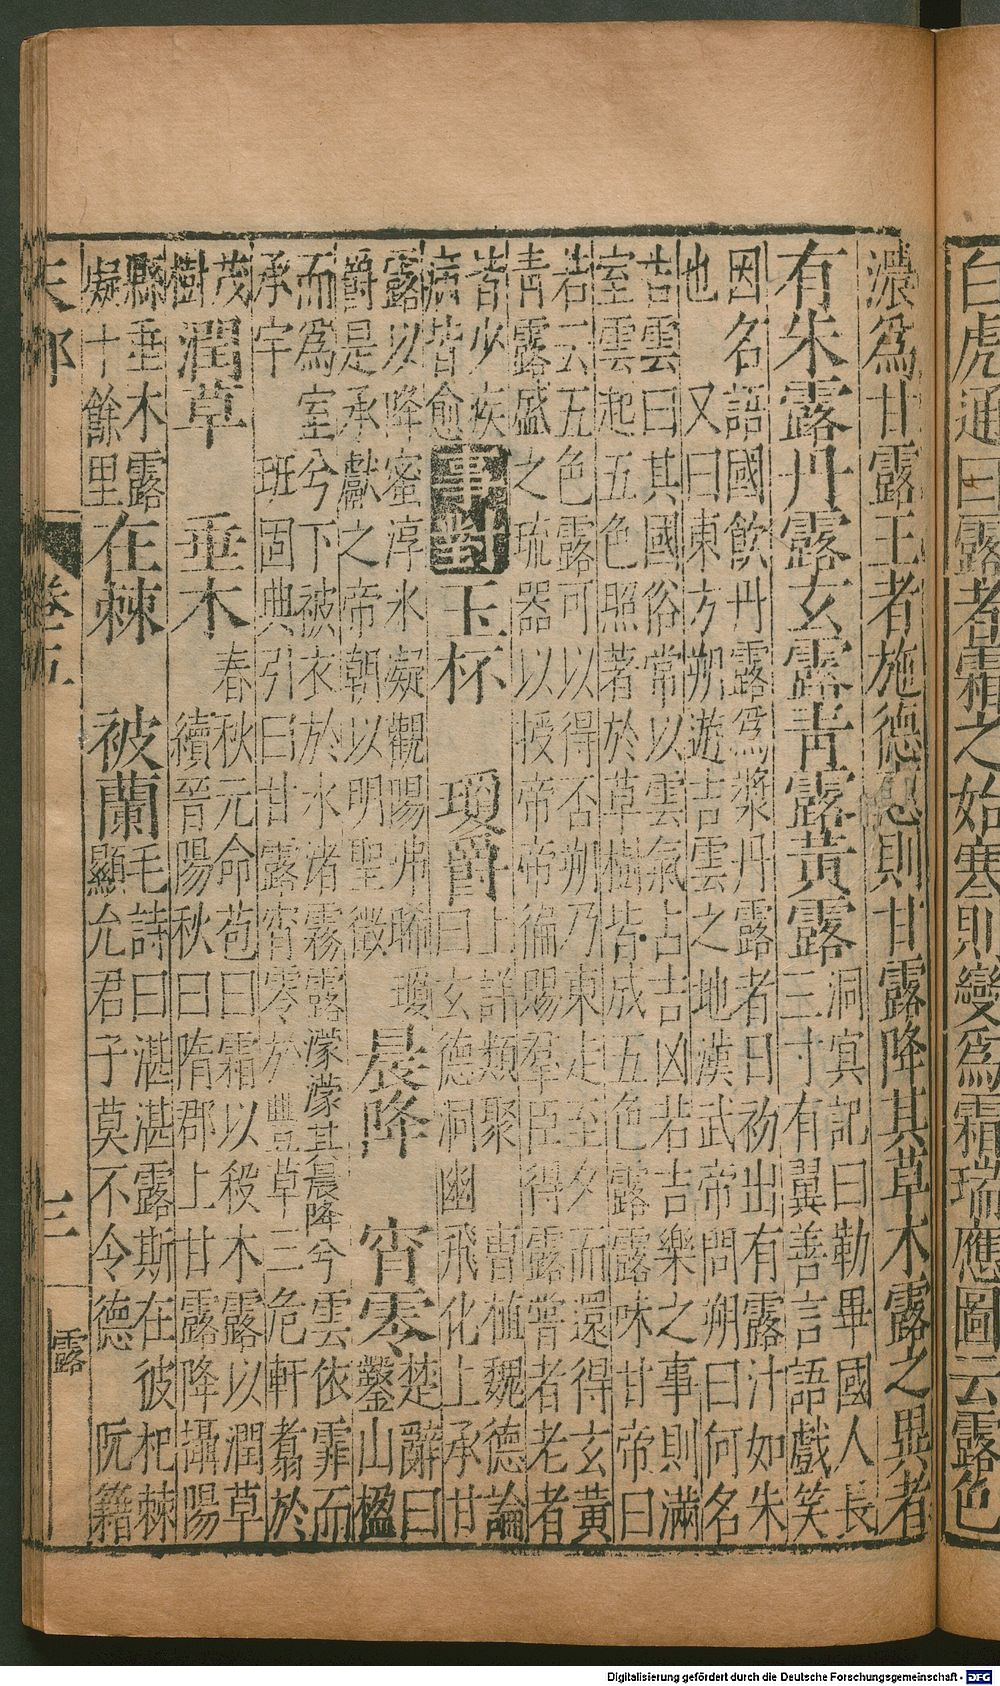 白虎通曰露者霜之始寒則變爲霜瑞應圖云露色
濃爲甘露王者施德惠則甘露降其草木露之異者
有朱露丹露玄露青露黃露
洞冥記曰勒畢國人長
三寸有翼善言語戲笑
因名語國飲丹露爲漿丹露者日初出有露汁如朱
也 又曰東方朔遊吉雲之地漢武帝問朔曰何名
吉雲曰其國俗常以雲氣占吉凶若吉樂之事則滿
室雲起五色照著於草樹皆成五色露露味甘帝曰
若云五色露可以得否朔乃東走至夕而還得玄黃
青露盛之琉器以授帝帝徧賜羣臣得露嘗者老者
皆少疾
病皆愈
事對 玉杯 瓊爵
上詳類聚 曹植魏德論
曰玄德洞幽飛化上承甘
露以降蜜淳冰凝觀陽弗晞瓊
爵是承獻之帝朝以明聖徵
晨降 宵零
楚辭曰
鑿山楹
而爲室兮下被衣於水渚霧露濛濛其晨降兮雲依霏而
承宇 班固典引曰甘露宵零於豐草三危軒翥於
茂
樹
潤草 垂木
春秋元命苞曰霜以殺木露以潤草
續晉陽秋曰隋郡上甘露降攝陽
縣垂木露
凝十餘里
在棘 被蘭
毛詩曰湛湛露斯在彼杞棘
顯允君子莫不令德 阮籍
天部 卷五 三 露
Digitalisierung gefördert durch die Deutsche Forschungsgemeinschaft - DFG